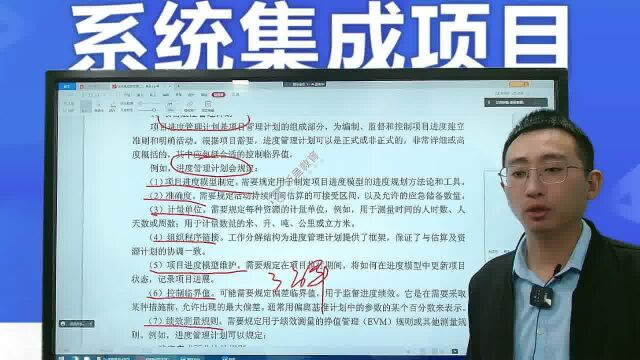 系统集成项目
项目进度管理计划是项目管理计划的组成部分，为编制、监督和控制项目进度建立
准则和明确活动。根据项目需要，进度管理计划可以是正式或非正式的，非常详细或高
度概括的，其中应包括合适的控制临界值。
例如，进度管理计划会规定：
（1）项目进度模型制定。需要规定用于制定项目进度模型的进度规划方法论和工具。
（2）准确度。需要规定活动持续时间估算的可接受区间，以及允许的应急储备数量。
（3）计量单位。需要规定每种资源的计量单位，例如，用于测量时间的人时数、人
天数或周数；用于计量数量的米、升、吨、公里或立方米。
（4）组织程序链接。工作分解结构为进度管理计划提供了框架，保证了与估算及资
源计划的协调一致。
（5）项目进度模型维护。需要规定在项目执行期间，将如何在进度模型中更新项目
状态，记录项目进展。
（6）控制临界值。可能需要规定偏差临界值，用于监督进度绩效。它是在需要采取
某种措施前，允许出现的最大偏差。通常用偏离基准计划中的参数的某个百分数来表示。
（7）绩效测量规则。需要规定用于绩效测量的挣值管理（EVM）规则或其他测量规
则。例如，进度管理计划可以规定：